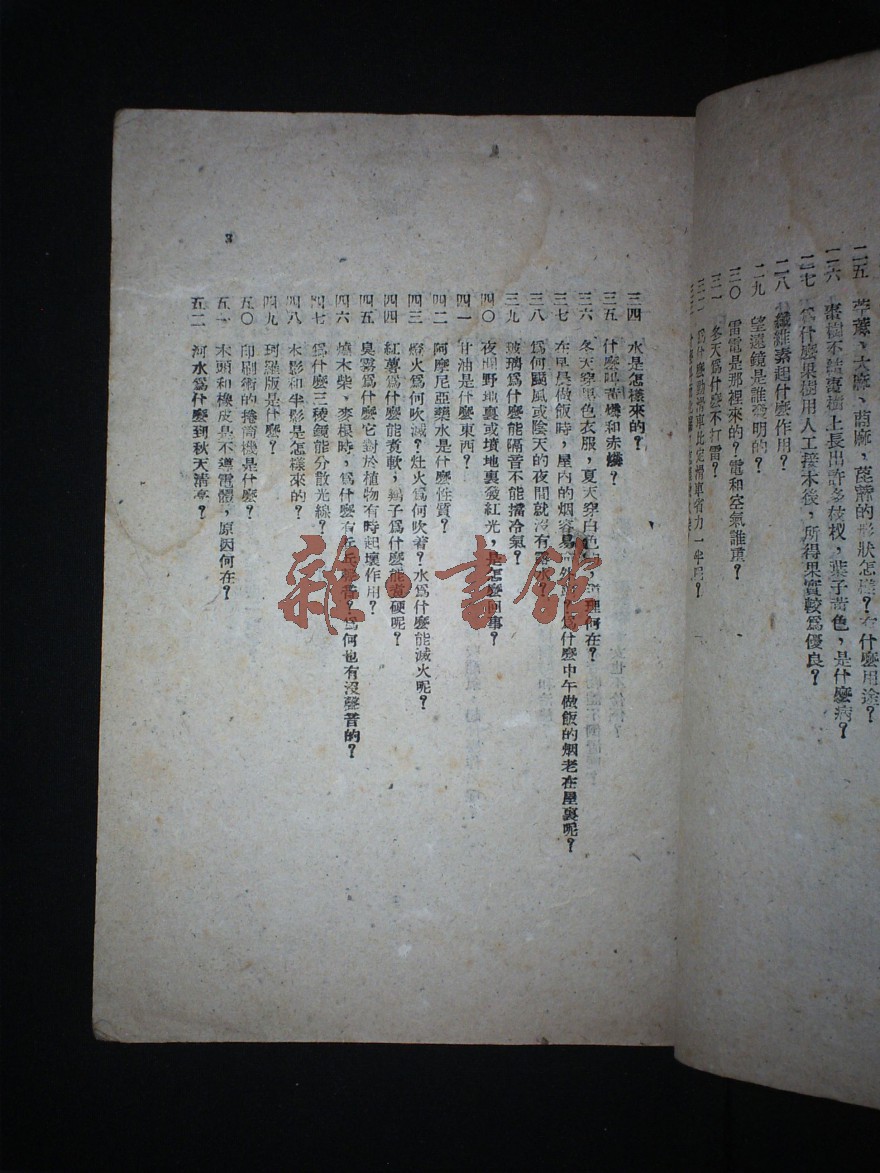 二五 苧蔴、大麻、
二六 棗樹不結棗樹上長出許多枝杈,葉子黃色,是什麽病?
二七 爲什麽果樹用人工接木後,所得果實較爲優良?
二八 纖維素起什麽作用?
二九 望遠鏡是誰發明的?
三〇 雷電是那裡來的?電和空氣誰重?
三一 冬天爲什麽不打雷?
三二 爲什麽動滑車比定滑車省力一半呢?
三四 水是怎樣來的?
三五 什麽叫黃磷和赤磷?
三六 冬天穿黑色衣服,夏天穿白色 理何在?
三七 在早晨做飯時,屋內的烟容易 爲什麽中午做飯的烟老在屋裏呢?
三八 爲何颳風或陰天的夜間就沒有露水?
三九 玻璃爲什麽能隔音不能擋冷氣?
四〇 夜間野地裏或墳地裏發紅光,是怎麽回事?
四一 甘油是什麽東西?
四二 阿摩尼亞藥水是什麽性質?
四三 燈火爲何吹滅?灶火爲何吹着?水爲什麽能滅火呢?
四四 紅薯爲什麽能煮軟,鷄子爲什麽能煮硬呢?
四五 臭霧爲什麽它對於植物有時起壞作用?
四六 燒木柴、麥根時,爲什麽有 爲何也有沒聲音的?
四七 爲什麽三稜鏡能分散光線?
四八 本影和半影是怎樣來的?
四九 珂羅版是什麽?
五〇 印刷術的捲筒機是什麽?
五一 木頭和橡皮是不導電體,原因何在?
五二 河水爲什麽到秋天清亮?
3
雜·書館